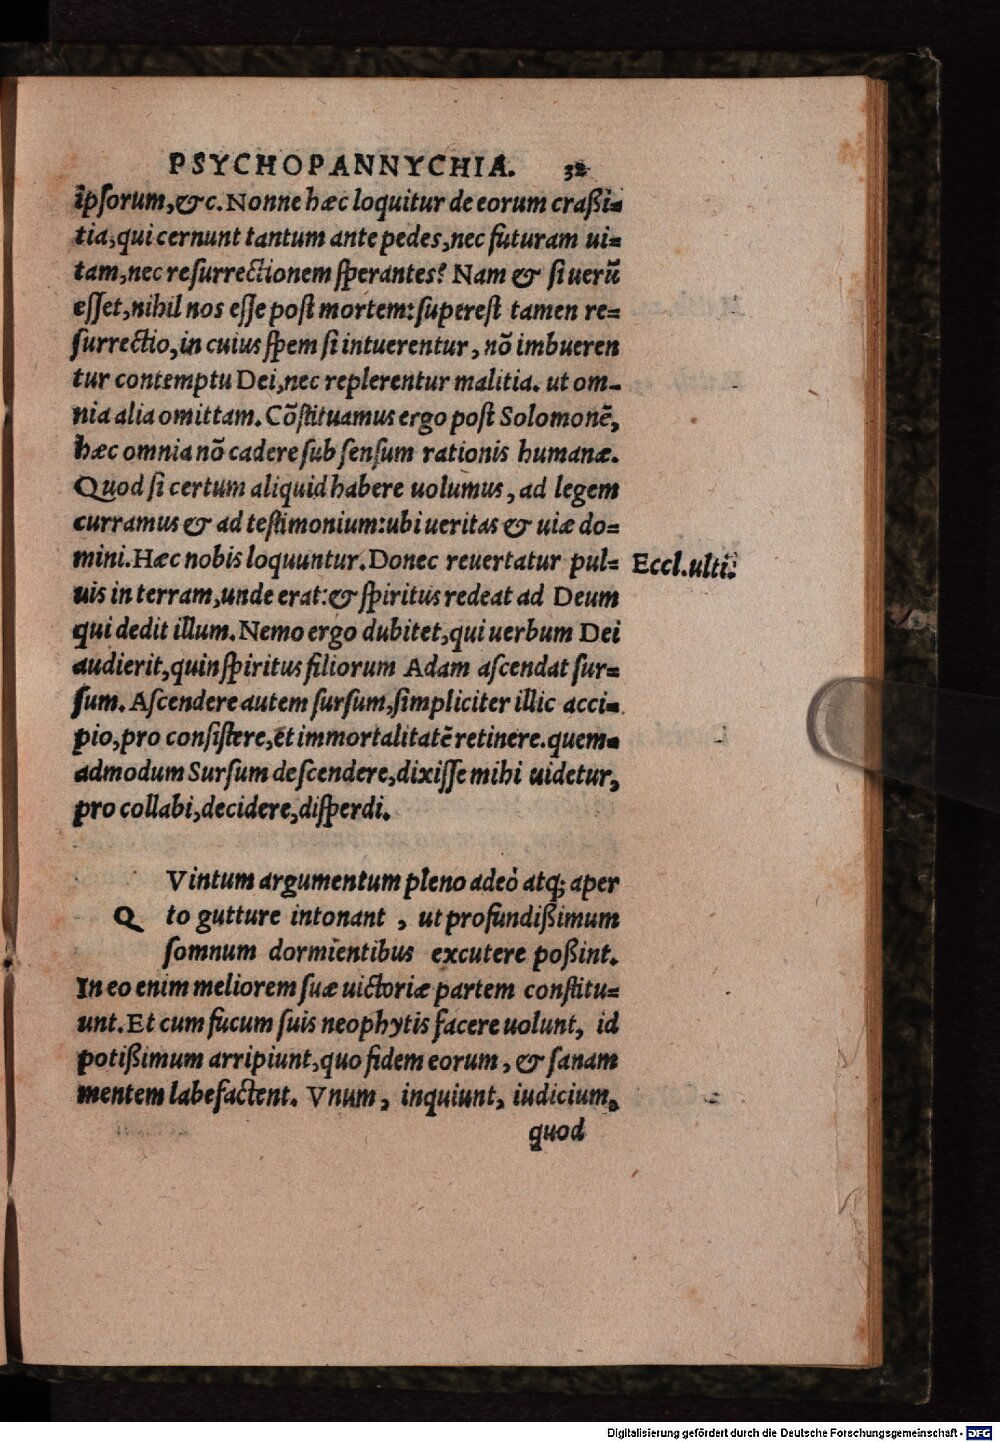 PSYCHOPANNYCHIA. 32
ipſorum,&c. Nonne hæc loquitur de eorum craßi=
tia, qui cernunt tantum ante pedes, nec futuram ui=
tam, nec reſurrectionem ſperantes? Nam & ſi uerũ
eſſet, nihil nos eſſe poſt mortem: ſupereſt tamen re=
ſurrectio, in cuius ſpem ſi intuerentur, nõ imbueren
tur contemptu Dei, nec replerentur malitia. ut om=
nia alia omittam. Cõſtituamus ergo poſt Solomonẽ,
hæc omnia nõ cadere ſub ſenſum rationis humanæ.
Quod ſi certum aliquid habere uolumus, ad legem
curramus & ad teſtimonium: ubi ueritas & uiæ do=
mini. Hæc nobis loquuntur. Donec reuertatur pul=
Eccl. ulti.
uis in terram, unde erat: & ſpiritus redeat ad Deum
qui dedit illum. Nemo ergo dubitet, qui uerbum Dei
audierit, quin ſpiritus filiorum Adam aſcendat ſur=
ſum. Aſcendere autem ſurſum, ſimpliciter illic acci=
pio, pro conſiſtere, et immortalitatẽ retinere. quem=
admodum Surſum deſcendere, dixiſſe mihi uidetur,
pro collabi, decidere, diſperdi.
Vintum argumentum pleno adeò atq; aper
Q to gutture intonant, ut profundißimum
ſomnum dormientibus excutere poßint.
In eo enim meliorem ſuæ uictoriæ partem conſtitu=
unt. Et cum fucum ſuis neophytis facere uolunt, id
potißimum arripiunt, quo fidem eorum, & ſanam
mentem labefactent. Vnum, inquiunt, iudicium,
quod
Digitalisierung gefördert durch die Deutsche Forschungsgemeinschaft - DFG